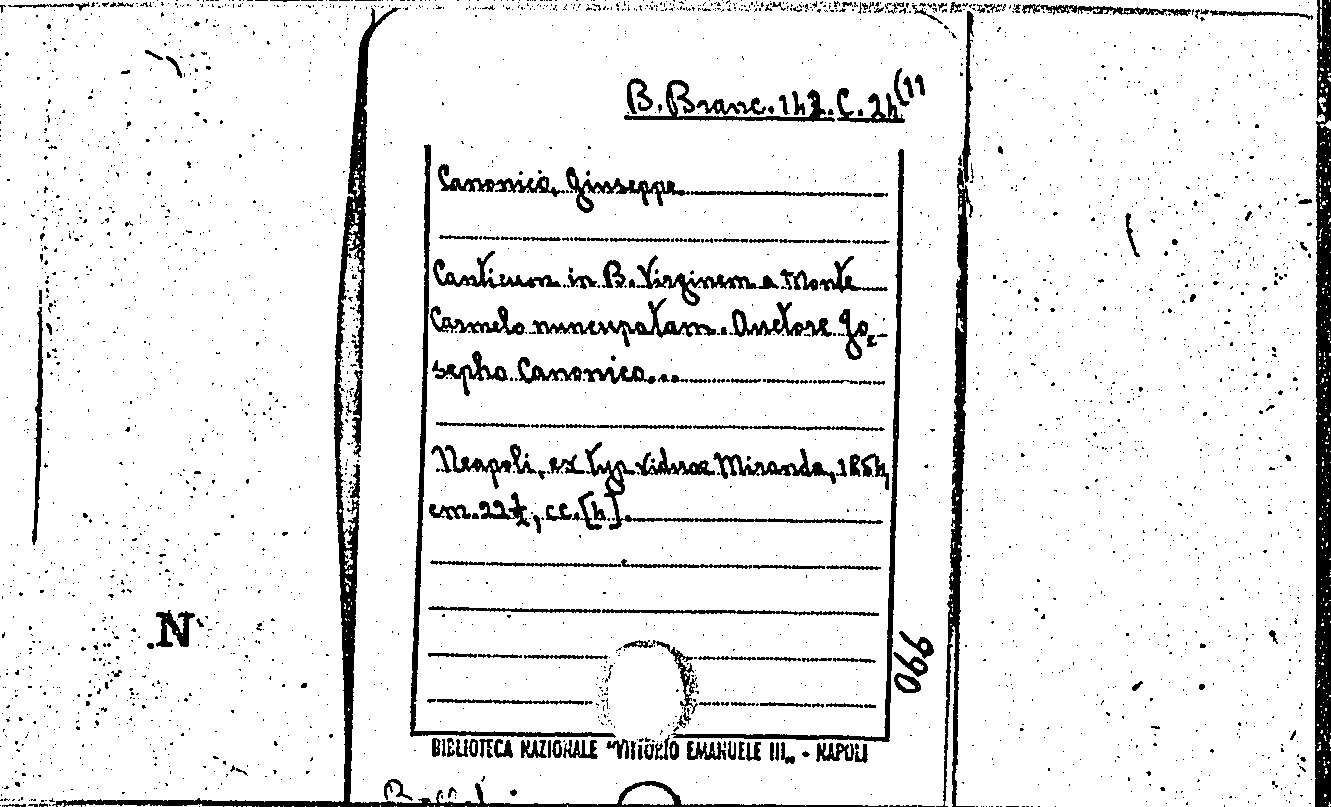 B. Branc. 142. C. 24(11
Canonico, Giuseppe
Canticum in B. Virginem a Monte
Carmelo nuncupatam. Auctore Jo-
sepho Canonico...
Neapoli, ex typ. viduae Miranda, 1854,
cm. 22½, cc. [4].
N
990
BIBLIOTECA NAZIONALE "VITTORIO EMANUELE III„ - NAPOLI